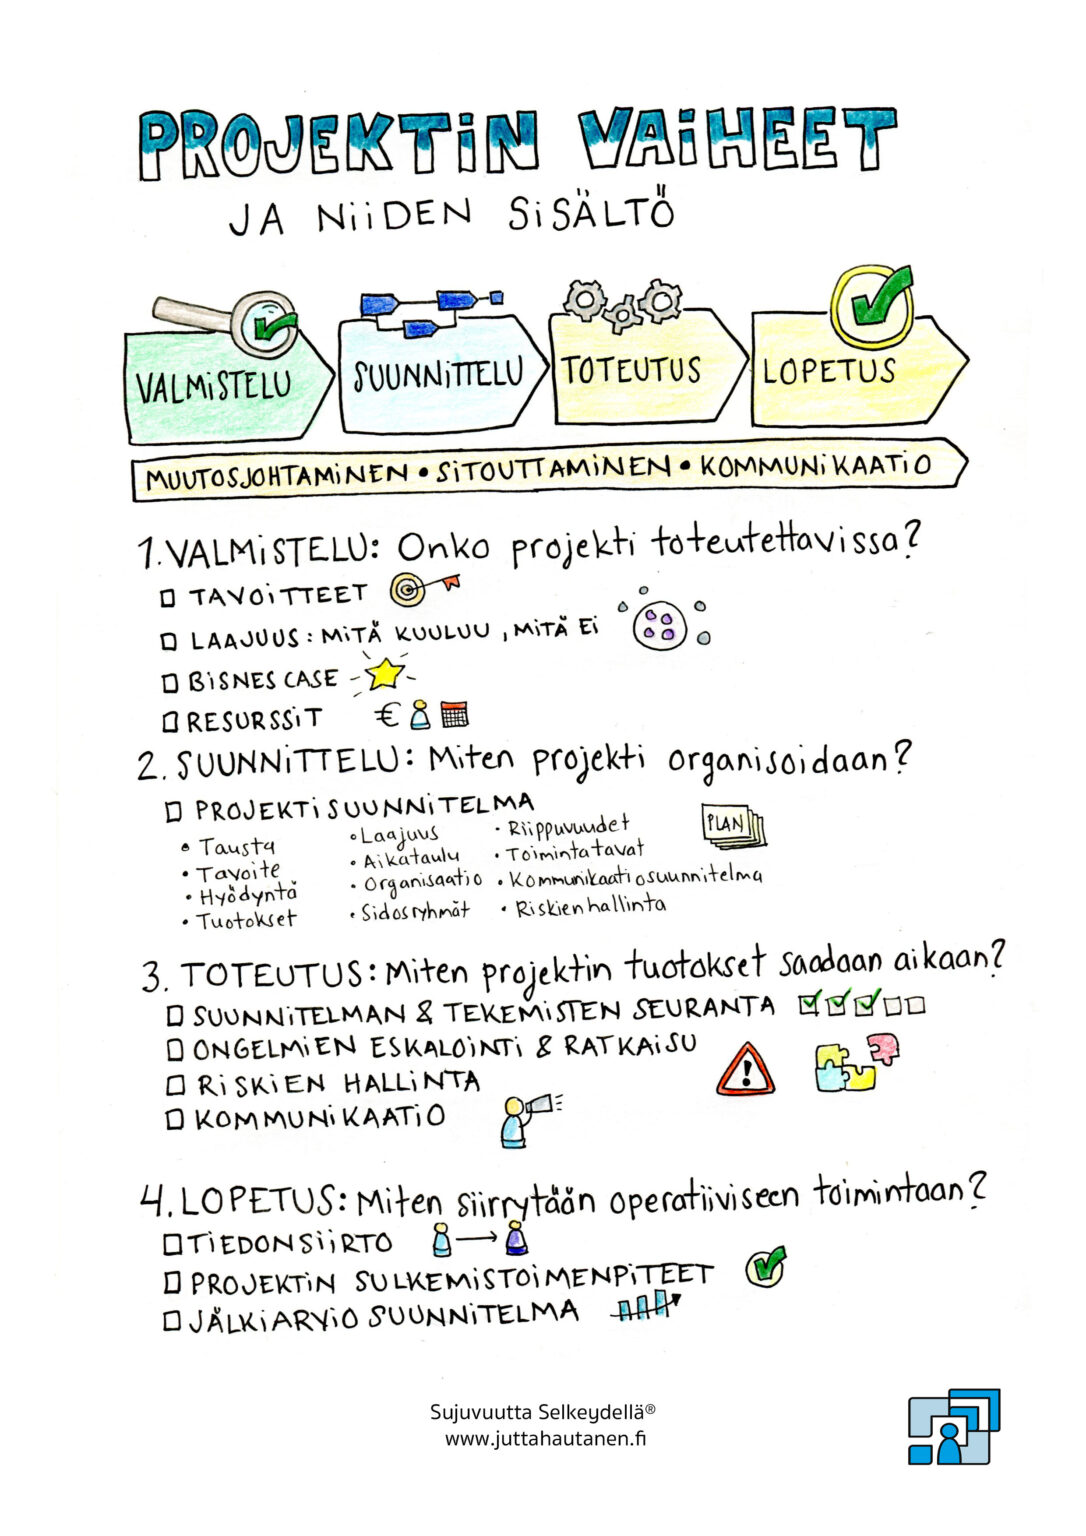 PROJEKTIN VAIHEET
JA NIIDEN SISÄLTÖ
VALMISTELU
SUUNNITTELU
TOTEUTUS
LOPETUS
MUUTOSJOHTAMINEN • SITOUTTAMINEN • KOMMUNIKAATIO
1. VALMISTELU: Onko projekti toteutettavissa?
TAVOITTEET
LAAJUUS: MITÄ KUULUU, MITÄ EI
BISNES CASE
RESURSSIT €
2. SUUNNITTELU: Miten projekti organisoidaan?
PROJEKTISUUNNITELMA
PLAN
• Tausta
• Tavoite
• Hyödyntä
• Tuotokset
• Laajuus
• Aikataulu
• Organisaatio
• Sidosryhmät
• Riippuvuudet
• Toimintatavat
• Kommunikaatiosuunnitelma
• Riskienhallinta
3. TOTEUTUS: Miten projektin tuotokset saadaan aikaan?
SUUNNITELMAN & TEKEMISTEN SEURANTA
ONGELMIEN ESKALOINTI & RATKAISU
!
RISKIEN HALLINTA
KOMMUNIKAATIO
4. LOPETUS: Miten siirrytään operatiiviseen toimintaan?
TIEDONSIIRTO
PROJEKTIN SULKEMISTOIMENPITEET
JÄLKIARVIO SUUNNITELMA
Sujuvuutta Selkeydellä®
www.juttahautanen.fi